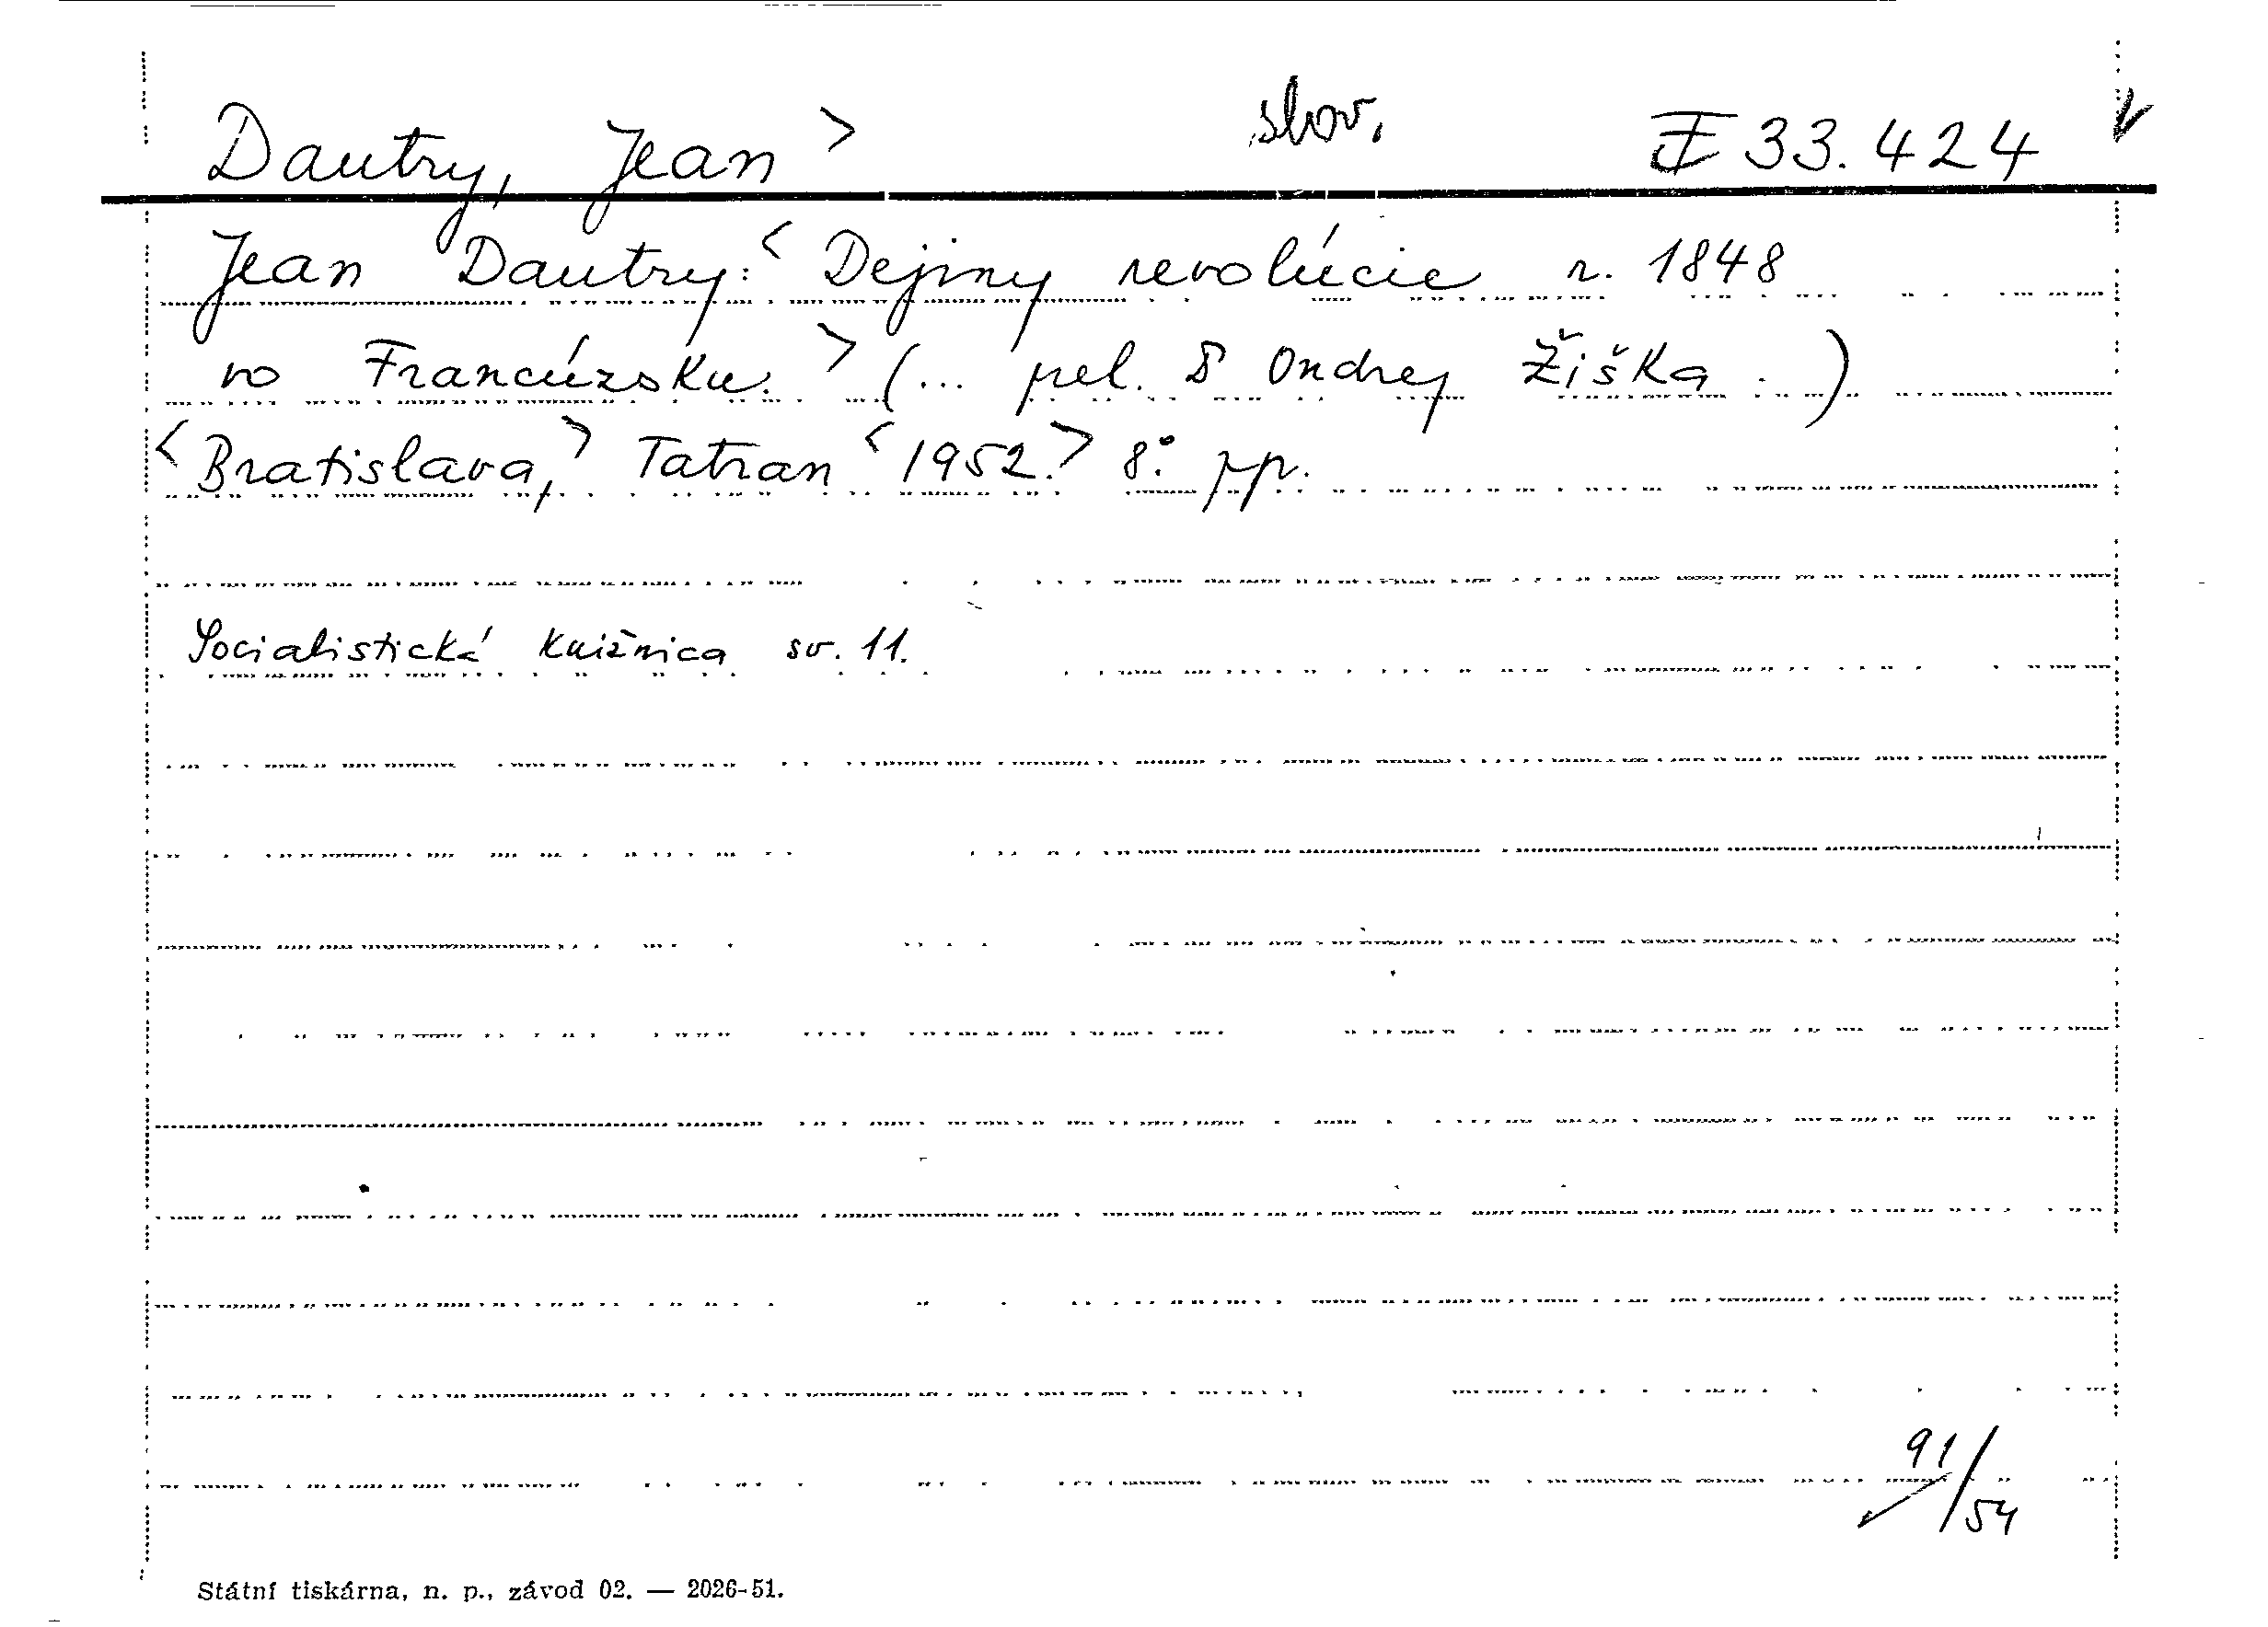 Dautry, Jean > slov. I 33.424
Jean Dautry: < Dejiny revolúcie r. 1848
vo Francúzsku. > (... prel. Ondrej Žiška . )
< Bratislava, > Tatran < 1952. > 8°. pp.
Socialistická knižnica sv. 11.
91/54
Státní tiskárna, n. p., závod 02. — 2026-51.